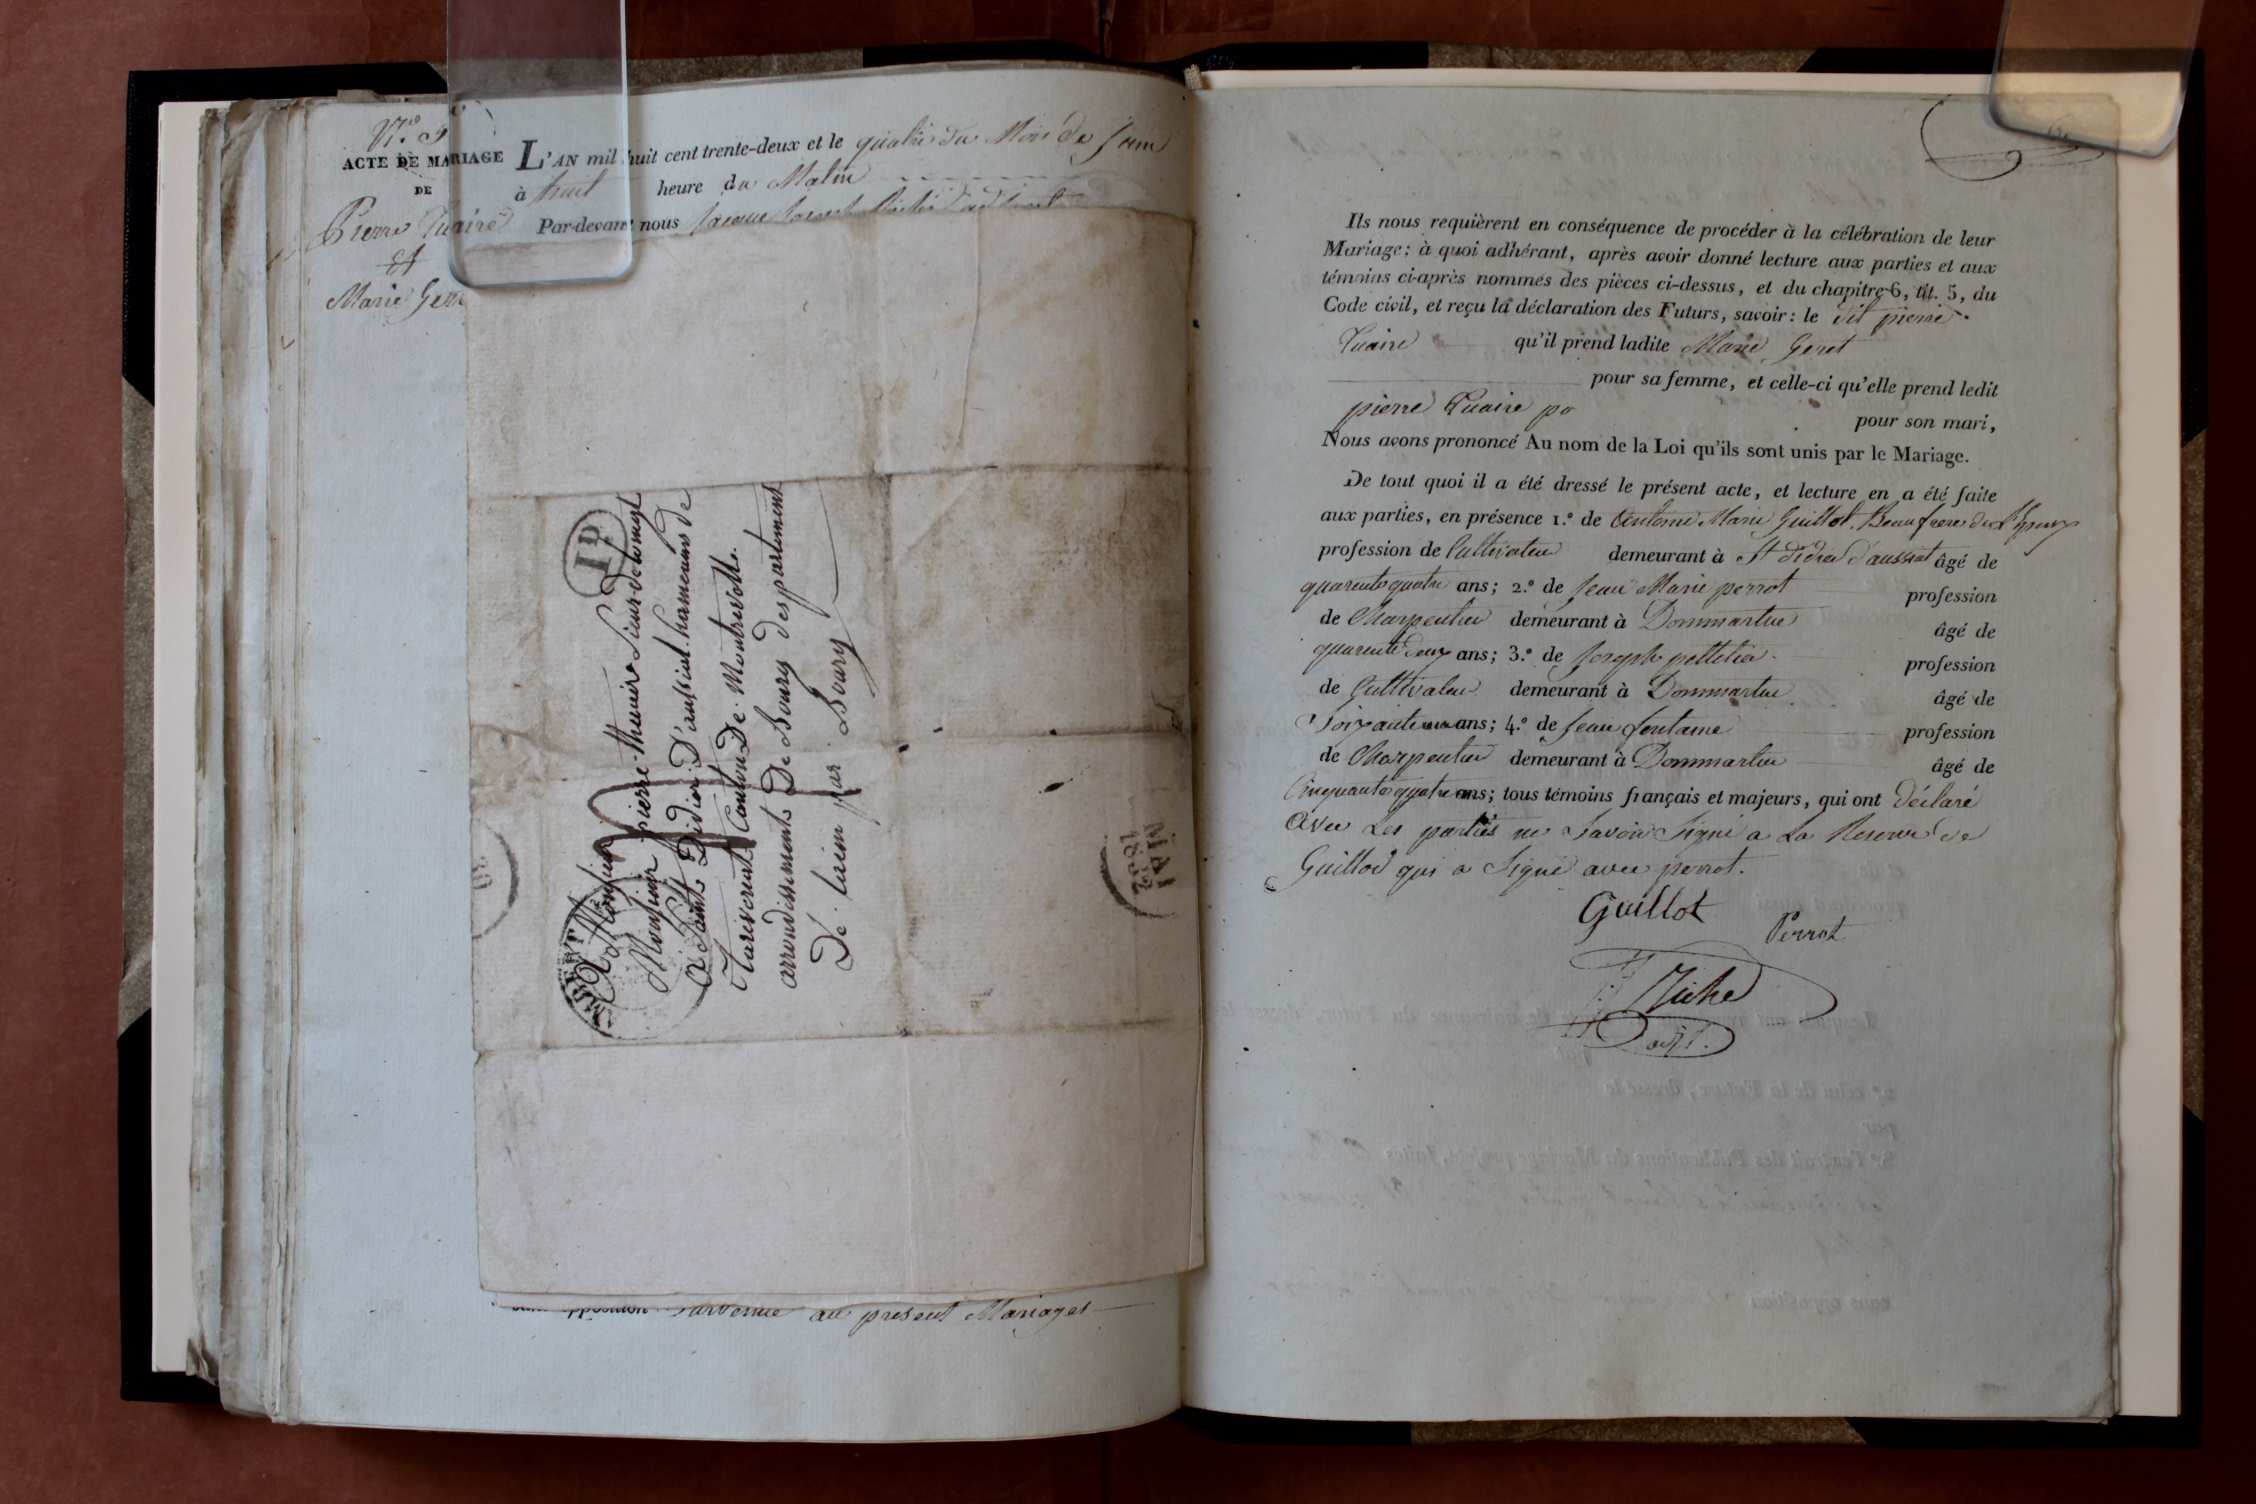 N.o
ACTE DE MARIAGE
DE
Pierre Tuaire
et
Marie Geret
L'AN mil huit cent trente-deux et le quatre du Mois de Juin
à huit heure du Matin
Par-devant nous
A Monsieur
Monsieur pierre thuaire
a Saint Didier D'aussiat hameaux de
Canton De Montrevelle
arrondissements De Bourg despartement
De L'ain par Bourg
ID
MAI
1832
sans opposition survenue au present Mariages
Ils nous requièrent en conséquence de procéder à la célébration de leur
Mariage; à quoi adhérant, après avoir donné lecture aux parties et aux
témoins ci-après nommés des pièces ci-dessus, et du chapitre 6, tit. 5, du
Code civil, et reçu la déclaration des Futurs, savoir: le dit pierre
Tuaire qu'il prend ladite Marie Geret
pour sa femme, et celle-ci qu'elle prend ledit
pierre Tuaire po pour son mari,
Nous avons prononcé Au nom de la Loi qu'ils sont unis par le Mariage.
De tout quoi il a été dressé le présent acte, et lecture en a été faite
aux parties, en présence 1.o de Antoine Marie Guillot, Beaufrere de L'Epoux
profession de Cultivateur demeurant à St didier d'aussiat âgé de
quarente quatre ans; 2.o de Jean Marie perrot profession
de Charpentier demeurant à Dommartin âgé de
quarente deux ans; 3.o de Joseph pelletier profession
de Cultivateur demeurant à Dommartin âgé de
Soixante ans; 4.o de Jean fontaine profession
de Charpentier demeurant à Dommartin âgé de
Cinquante quatre ans; tous témoins français et majeurs, qui ont déclaré
avec Les parties ne Savoir Signé a La Reserve de
Guillot qui a Signé avec perrot.
Guillot
Perrot
adjt.